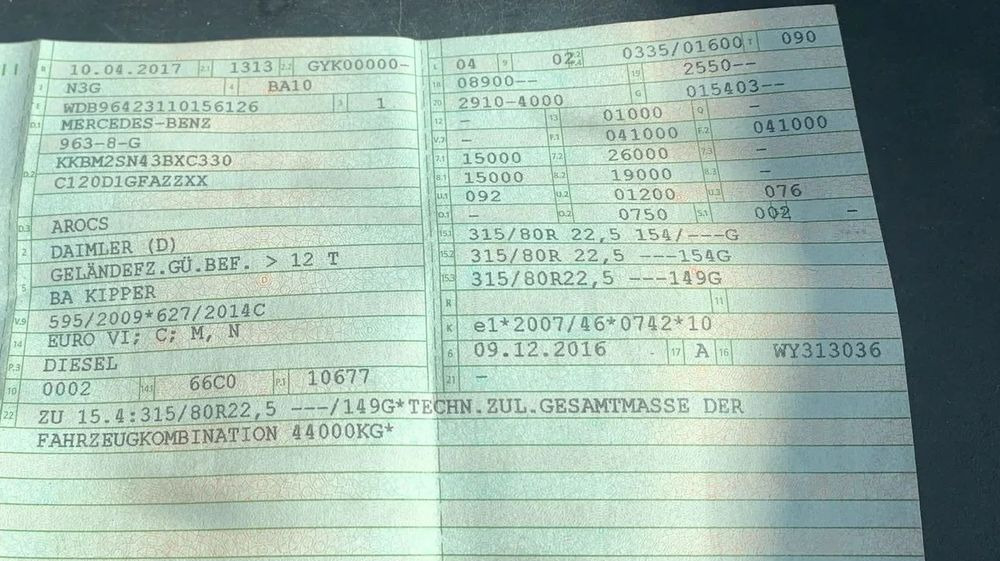 B 10.04.2017 2.1 1313 2.2 GYK00000-
J N3G 4 BA10
E WDB96423110156126 3 1
D.1 MERCEDES-BENZ
963-8-G
D.2 KKBM2SN43BXC330
C120D1GFAZZXX
D.3 AROCS
2 DAIMLER (D)
5 GELÄNDEFZ.GÜ.BEF. > 12 T
BA KIPPER
V.9 595/2009*627/2014C
14 EURO VI; C; M, N
P.3 DIESEL
10 0002 14.1 66C0 P.1 10677
22 ZU 15.4:315/80R22,5 ---/149G*TECHN.ZUL.GESAMTMASSE DER
FAHRZEUGKOMBINATION 44000KG*
L 04 9 02 P.2 P.4 0335/01600 T 090
18 08900-- 19 2550--
20 2910-4000 G 015403--
12 - 13 01000 Q -
V.7 - F.1 041000 F.2 041000
7.1 15000 7.2 26000 7.3 -
8.1 15000 8.2 19000 8.3 -
U.1 092 U.2 01200 U.3 076
O.1 - O.2 0750 S.1 002 -
15.1 315/80R 22,5 154/---G
15.2 315/80R 22,5 ---154G
15.3 315/80R22,5 ---149G
R 11
K e1*2007/46*0742*10
6 09.12.2016 17 A 16 WY313036
21 -